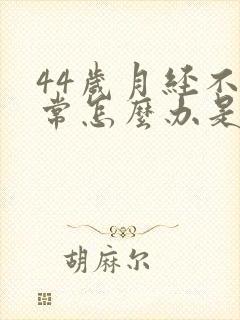 44歲月经不
常怎麼办是
胡麻尔